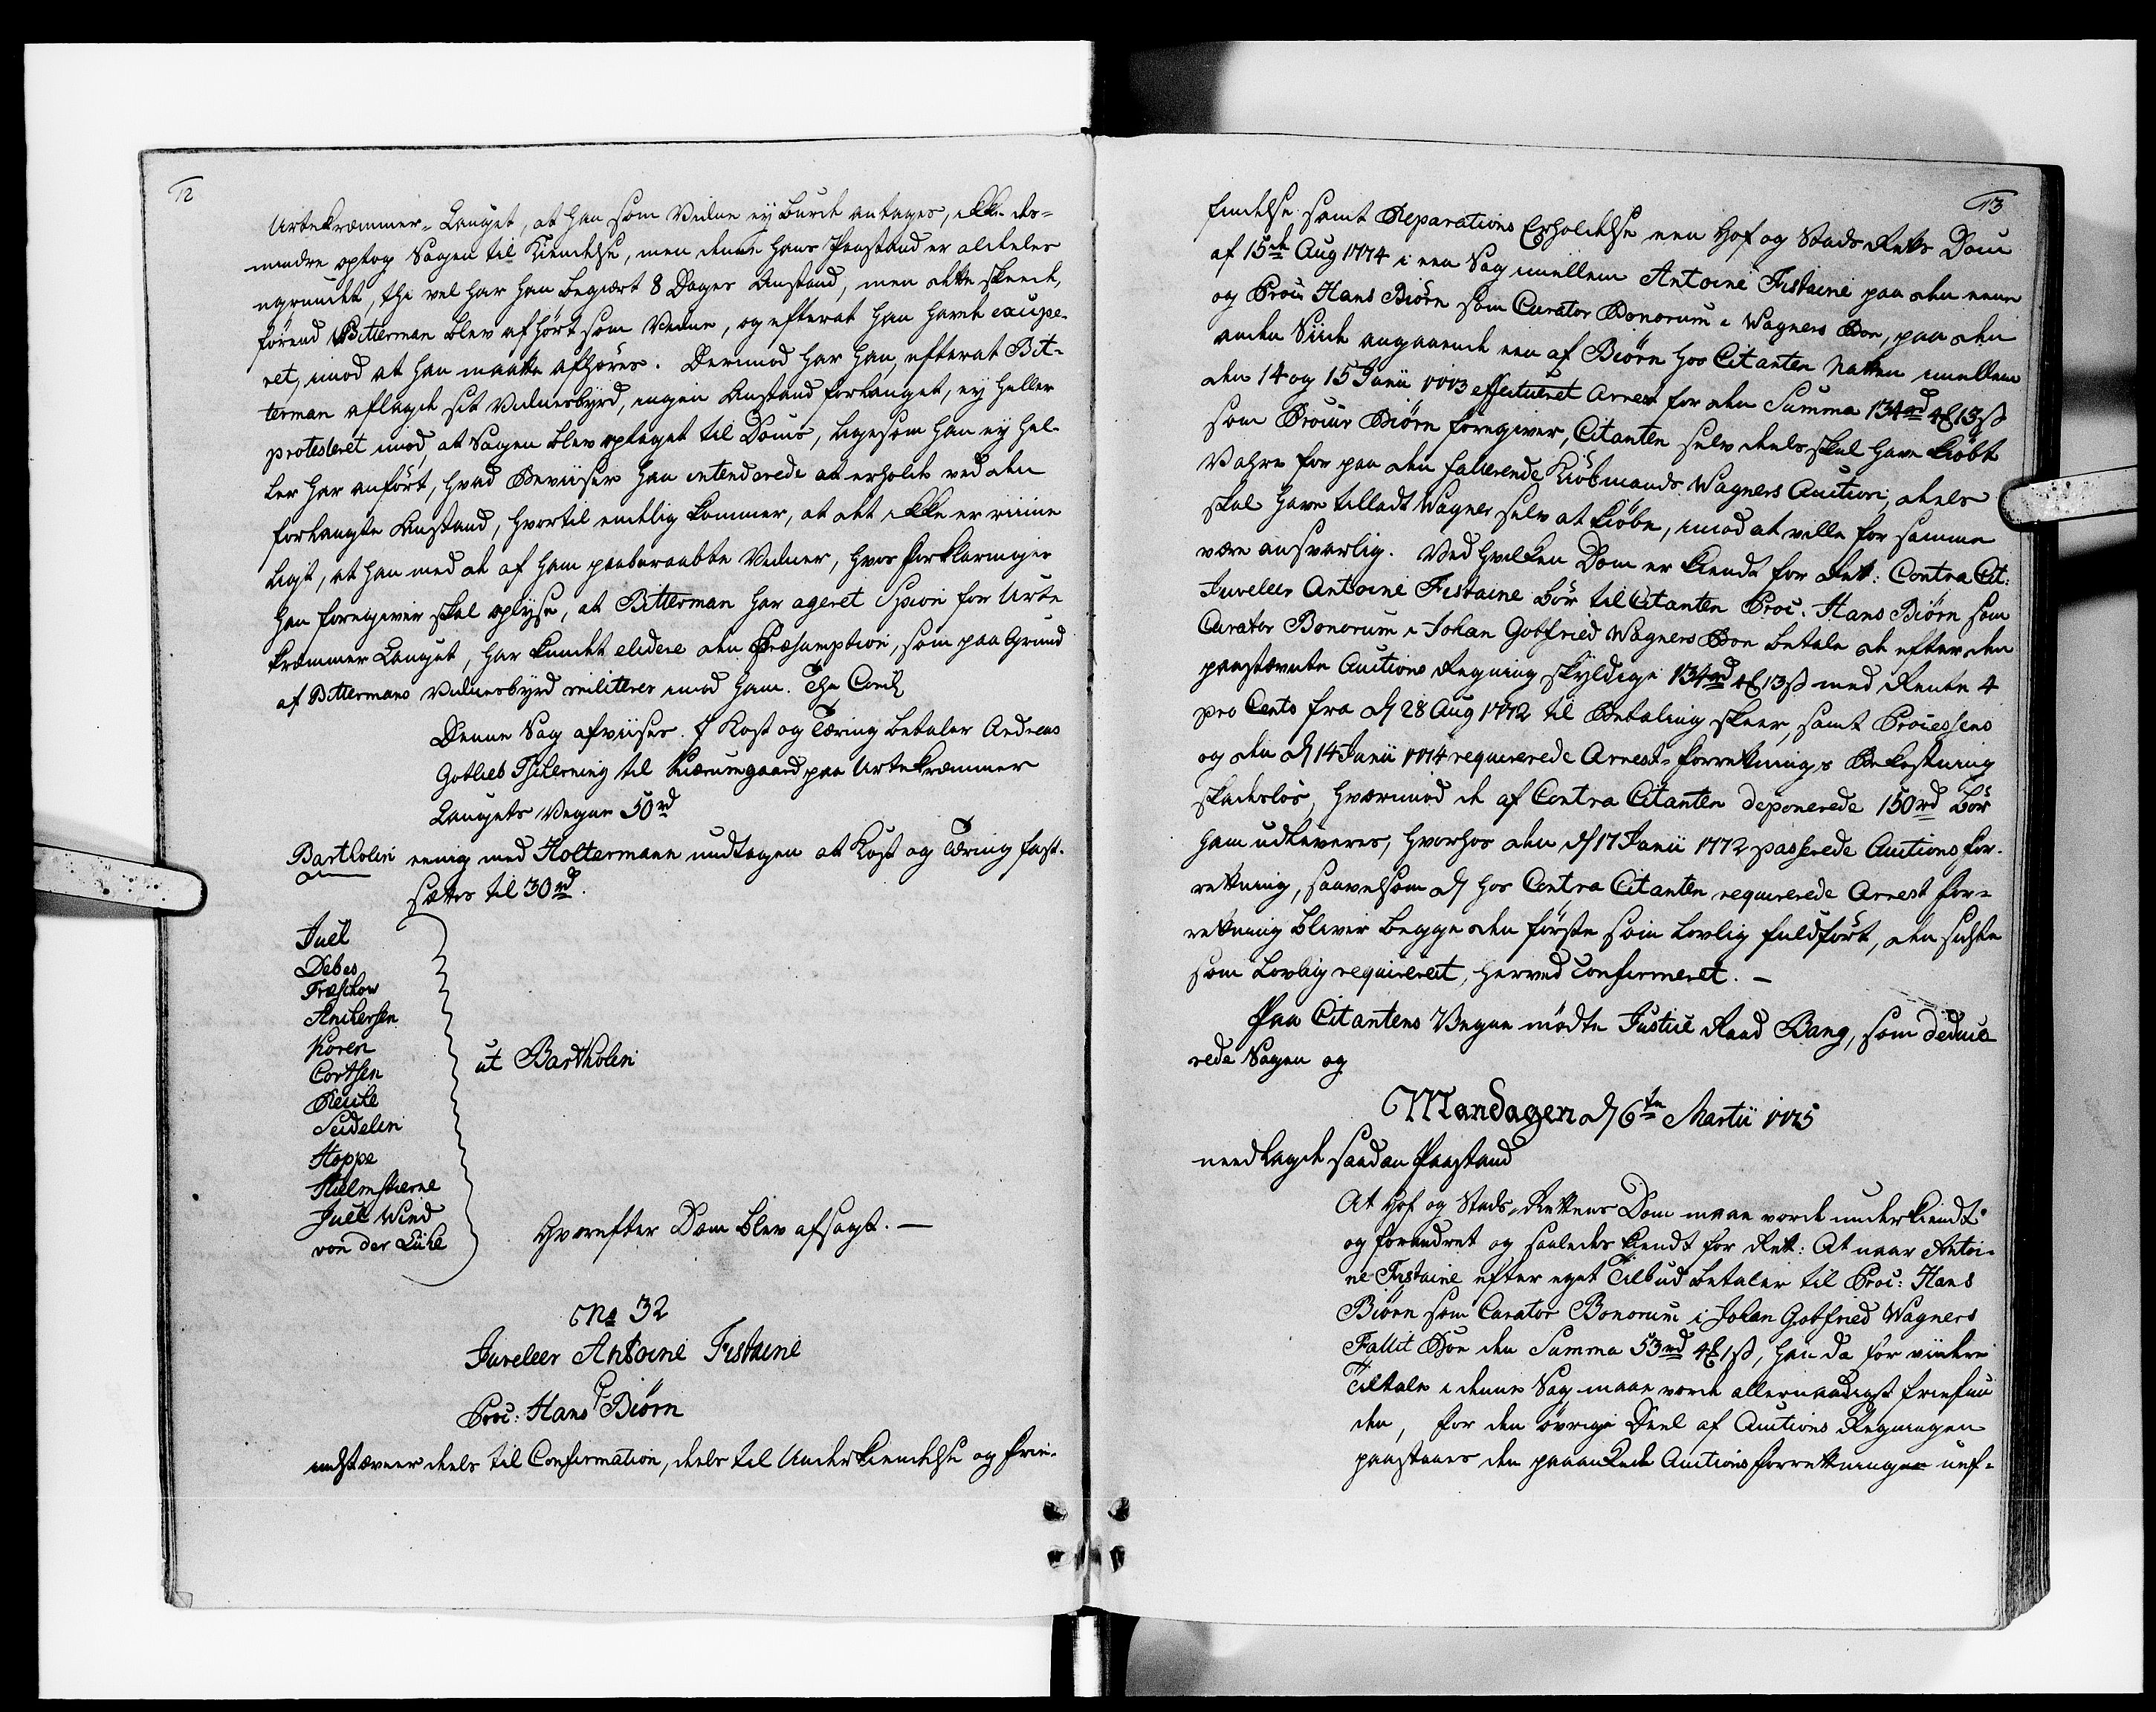 12
Urtekræmmer-Lauget, at han som Vidne ey burde antages, ikke des-
mindre optog Sagen til Kiendelse, men denne hans Paastand er aldeles
ugrundet, thi vel har han begiært 8 Dages Anstand, men dette skeede,
förend Bitterman blev afhört som Vidne, og efterat han havde exupe-
ret, imod at han maatte afhöres. Derimod har han, efterat Bit-
terman aflagde sit Vidnesbyrd, ingen Anstand forlanget, ey heller
protesteret imod, at Sagen blev optaget til Doms, ligesom han ey hel-
ler har anfört, hvad Beviiser han intenderede at erholde ved den
forlangte Anstand, hvortil endelig kommer, at det ikke er riime
ligt, at han med de af ham paaberaabte Vidner, hvis Forklaringer
han foregiver skal oplyse, at Bitterman har ageret Spion for Urte
kræmmer Lauget, har kundet elidere den Præsumption, som paa Grund
af Bittermans Vidnesbyrd militerer imod ham. Thi Concl
Denne Sag afviises. I Kost og Tæring betaler Andreas
Gotlieb Tscherning til Kierumgaard paa Urtekræmmer
Laugets Vegne 50 rd
Bartholin eenig med Holtermann undtagen at Kost og Tæring fast-
sættes til 30 rd.
Juel
Debes
Treschow
Anchersen
Koren
Cortsen
Reiche
Seidelin
Hoppe
Hielmstierne
Juel Wind
von der Lühe
ut Bartholin
Hvorefter Dom blev afsagt. —
No 32
Juveleer Antoine Fistaine
Proc: Hans Biörn
indstævner deels til Confirmation, deels til Underkiendelse og frie-
13
findelse samt Reparations Erholdelse een Hof og Stads Retts Dom
af 15de Aug 1774 i een Sag imellem Antoine Fistaine paa den eene
og Procu Hans Biörn som Curator Bonorum i Wagners Boe, paa den
anden Siide angaaende een af Biörn hos Citanten Natten imellem
den 14 og 15 Junii 1773 effectueret Arrest for den Summa 134 rd 4 ₻ 13 ß
som Procur Biörn foregiver, Citanten selv deels skal have kiöbt
Vahre for paa den fallerende Kiöbmands Wagners Auction, deels
skal have tilladt Wagner selv at kiöbe, imod at ville for samme
være ansvarlig. Ved hvilken Dom er kiendt for Rett: Contra Cit:
Juveleer Antoine Fistaine bör til Citanten Proc. Hans Biörn som
Curator Bonorum i Johan Gotfried Wagners Boe betale de efter den
paastævnte Auctions Regning skyldige 134 rd 4 ₻ 13 ß med Rente 4
pro Cento fra d 28 Aug 1772 til Betaling skeer, samt Processens
og den d 14 Junii 1774 requirerede Arrest-Forretnings Bekostning
skadeslös, hvorimod de af Contra Citanten deponerede 150 rd bör
ham udleveres, hvorhos den d 17 Junii 1772 passerede Auctions For-
retning, saavelsom d hos Contra Citanten requirerede Arrest For-
retning bliver begge den förste som lovlig fuldfört, den sidste
som lovlig requireret, herved confirmeret. —
Paa Citantens Vegne mödte Justice Raad Bang, som deduce
rede Sagen og
Mandagen d 6te Martii 1775
nedlagde saadan Paastand
At Hof og Stads-Rettens Dom maae vorde underkiendt
og forandret og saaledes kiendt for Rett: At naar Antoi-
ne Fistaine efter eget Tilbud betaler til Proc: Hans
Biörn som Curator Bonorum i Johan Gotfried Wagners
Fallit Boe den Summa 53 rd 4 ₻ 1 ß, han da for viidere
Tiltale i denne Sag maae vorde allernaadigst friefun
den, for den övrige Deel af Auctions Regningen
paastaaes den paaankede Auctionsforretninge uef-